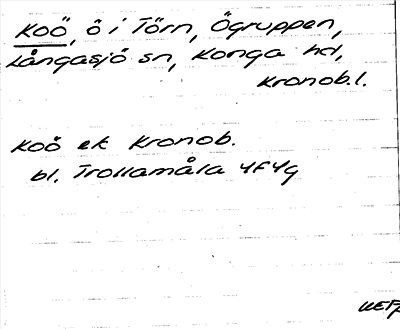 Koö, ö i Törn, Ögruppen,
Långasjö sn, Konga hd,
Kronob.l.
Koö ek Kronob.
bl. Trollamåla 4F4g